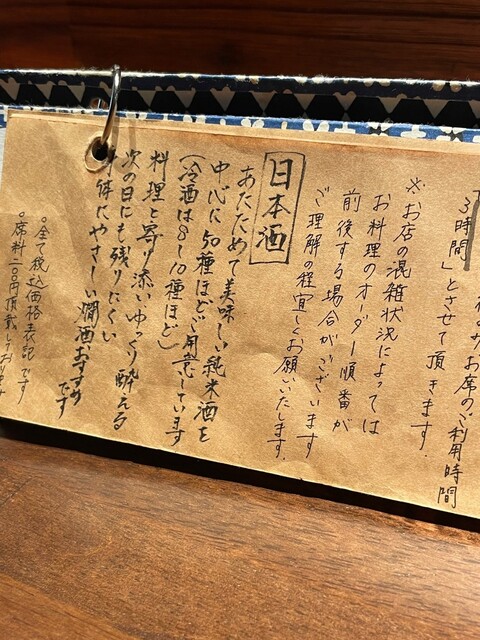 お席のご利用時間
3時間」とさせて頂きます.
※お店の混雑状況によっては
お料理のオーダー順番が
前後する場合がございます
ご理解の程宜しくお願いいたします.
日本酒
あたためて美味しい純米酒を
中心に50種ほどご用意しています
(冷酒は8〜10種ほど)
料理と寄り添いゆっくり酔える
次の日にも残りにくい
体にやさしい燗酒おすすめ
です
○全て税込価格表記です
○席料 円頂戴しております